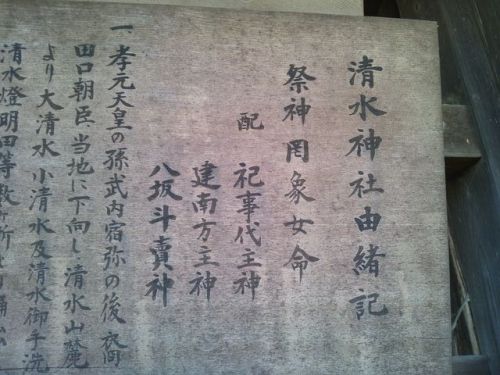 清水神社由緒記
祭神 罔象女命
配 祀事代主神
建南方主神
八坂斗賣神
一、孝元天皇の孫武内宿弥の後裔
田口朝臣、当地に下向し、清水山麓
より大清水小清水及清水御手洗
清水燈明田等数ヶ所より湧